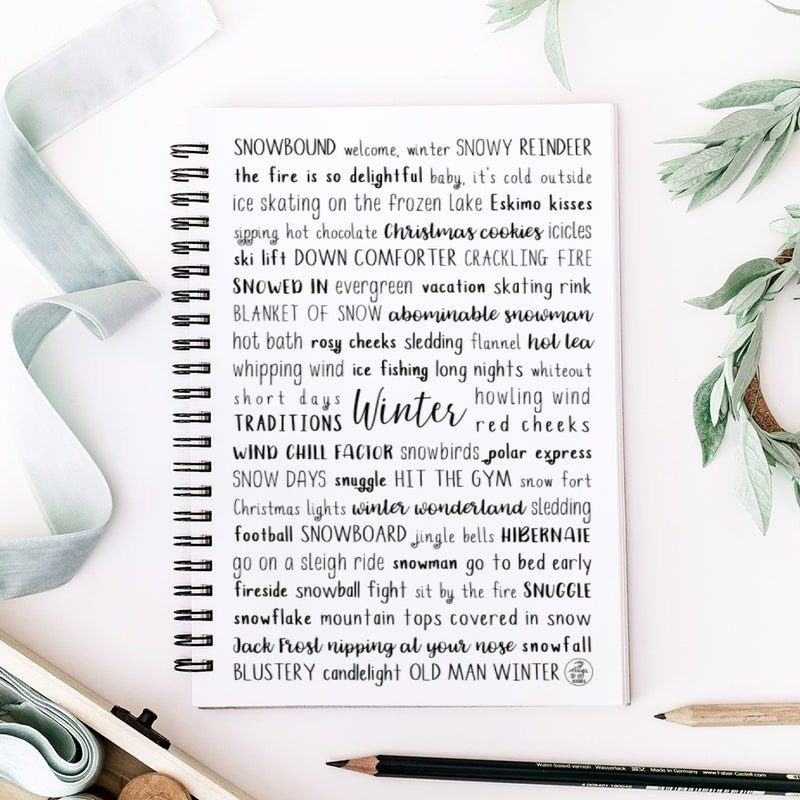 SNOWBOUND welcome, winter SNOWY REINDEER
the fire is so delightful baby, it's cold outside
ice skating on the frozen lake Eskimo kisses
sipping hot chocolate Christmas cookies icicles
ski lift DOWN COMFORTER CRACKLING FIRE
SNOWED IN evergreen vacation skating rink
BLANKET OF SNOW abominable snowman
hot bath rosy cheeks sledding flannel hot tea
whipping wind ice fishing long nights whiteout
short days Winter howling wind
TRADITIONS red cheeks
WIND CHILL FACTOR snowbirds polar express
SNOW DAYS snuggle HIT THE GYM snow fort
Christmas lights winter wonderland sledding
football SNOWBOARD jingle bells HIBERNATE
go on a sleigh ride snowman go to bed early
fireside snowball fight sit by the fire SNUGGLE
snowflake mountain tops covered in snow
Jack Frost nipping at your nose snowfall
BLUSTERY candlelight OLD MAN WINTER
Water-based varnish Wasserlack Made in Germany www.Faber-Castell.com